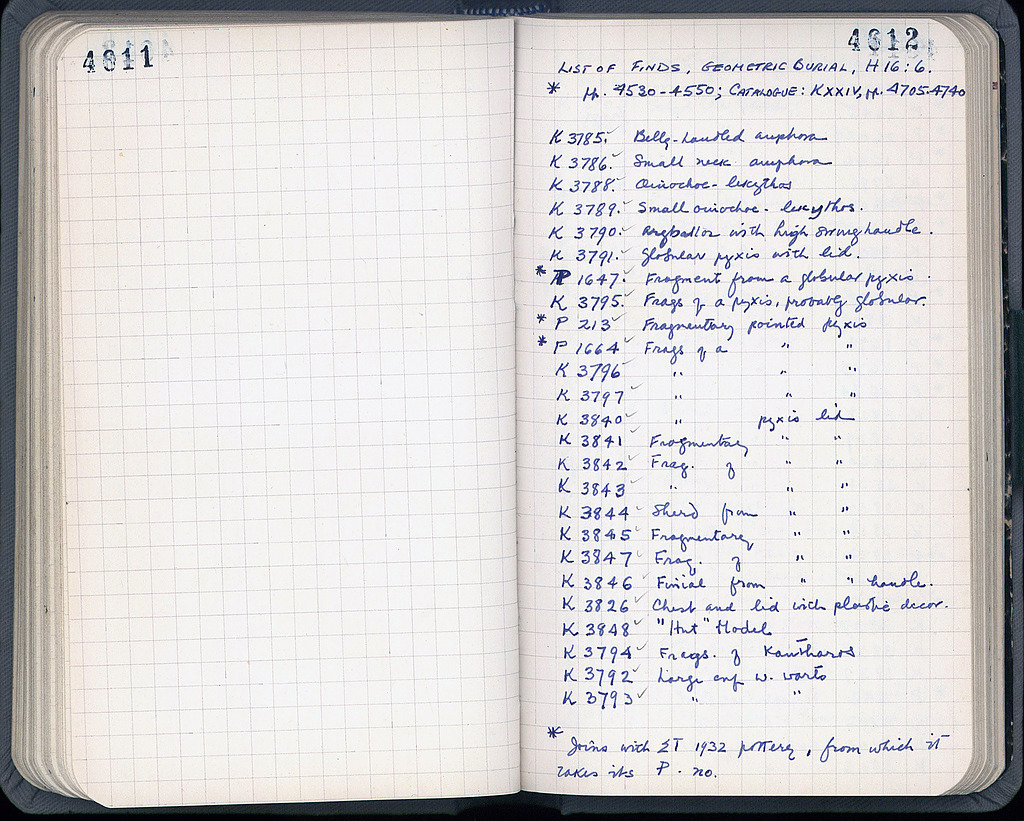 4811
4812
LIST OF FINDS, GEOMETRIC BURIAL, H 16:6.
* pp. 4530-4550; CATALOGUE: KXXIV, pp. 4705-4740
K 3785. ✓ Belly-handled amphora
K 3786. ✓ Small neck amphora
K 3788. ✓ Oinochoe-lekythos
K 3789. ✓ Small oinochoe-lekythos.
K 3790. ✓ Aryballos with high strung handle.
K 3791. ✓ Globular pyxis with lid.
* P 1647. ✓ Fragment from a globular pyxis.
K 3795. ✓ Frags of a pyxis, probably globular.
* P 213 ✓ Fragmentary pointed pyxis
* P 1664 ✓ Frags of a " "
K 3796 ✓ " " "
K 3797 ✓ " " "
K 3840 ✓ " pyxis lid
K 3841 ✓ Fragmentary " "
K 3842 ✓ Frag. of " "
K 3843 ✓ " " "
K 3844 ✓ Sherd from " "
K 3845 ✓ Fragmentary " "
K 3847 ✓ Frag. of " "
K 3846 ✓ Finial from " " handle.
K 3826 ✓ Chest and lid with plastic decor.
K 3848 ✓ "Hut" Model
K 3794 ✓ Frags. of Kantharos
K 3792 ✓ Large cup w. warts
K 3793 ✓ " "
* Joins with ΣΤ 1932 pottery, from which it
takes its P. no.